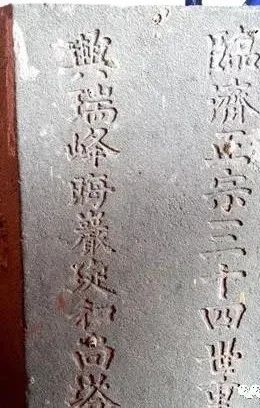 臨濟正宗三十四世重
興瑞峰晦巖和尚塔